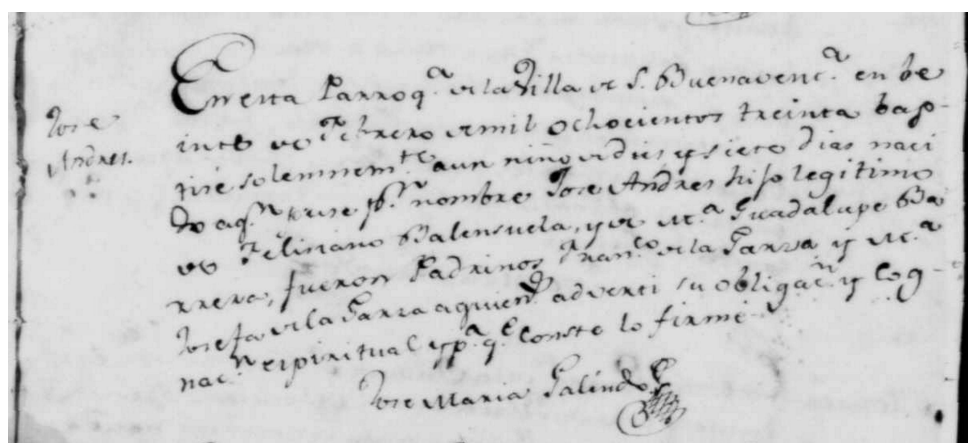 Jose
Andres.
En esta Parroq.a de la Villa de S. Buenavent.a en be
inte de Febrero de mil ochocientos treinta bap-
tise solemnem.te a un niño de dies y siete dias naci
do a q.n puse p.r nombre Jose Andres hijo legitimo
de Feliciano Balensuela, y de M.a Guadalupe Ba
rrera, fueron Padrinos Fran.co de la Garza y M.a
Josefa de la Garza a quien.s adverti su obligac.n y cog-
nac.n espiritual y p.a q.e conste lo firmé
Jose Maria Galindo